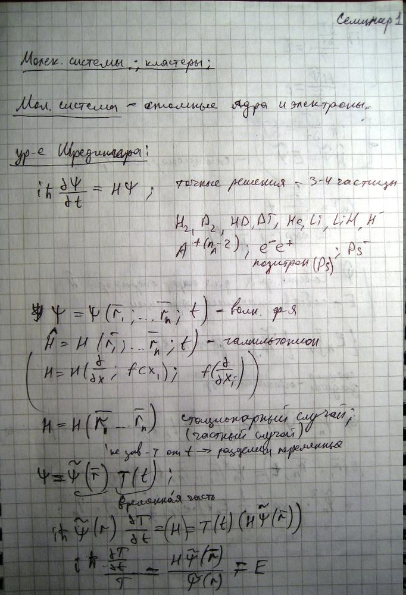 Семинар 1
Молек. системы.; кластеры;
Мол. системы – атомные ядра и электроны.
ур-е Шредингера:
iħ ∂Ψ/∂t = HΨ ; точные решения – 3-4 частицы
H₂, D₂, HD, DT, He, Li, LiH, H⁻
e⁻e⁺ ; Ps⁻
позитрон (Ps)
Ψ = Ψ(r̄₁; ... r̄ₙ; t) – волн. ф-я
Ĥ = H(r̄₁; ... r̄ₙ; t) – гамильтониан
(H = H(∂/∂x ; f(x₁); f(∂/∂xᵢ)))
H = H(r̄₁ ... r̄ₙ) стационарный случай;
(частный случай)
не зав-т от t → разделяем переменные
Ψ = Ψ̃(r̄) T(t) ;
временная часть
iħ Ψ̃(r) ∂T/∂t = (H) = T(t) (HΨ̃(r̄))
iħ (∂T/∂t)/T = HΨ̃(r̄)/Ψ̃(r) = E